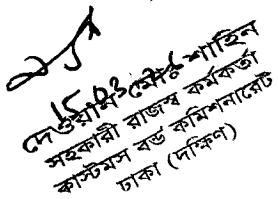 15.03
দেওয়ান মোঃ শাহিন
সহকারী রাজস্ব কর্মকর্তা
কাস্টমস বন্ড কমিশনারেট
ঢাকা (দক্ষিণ)